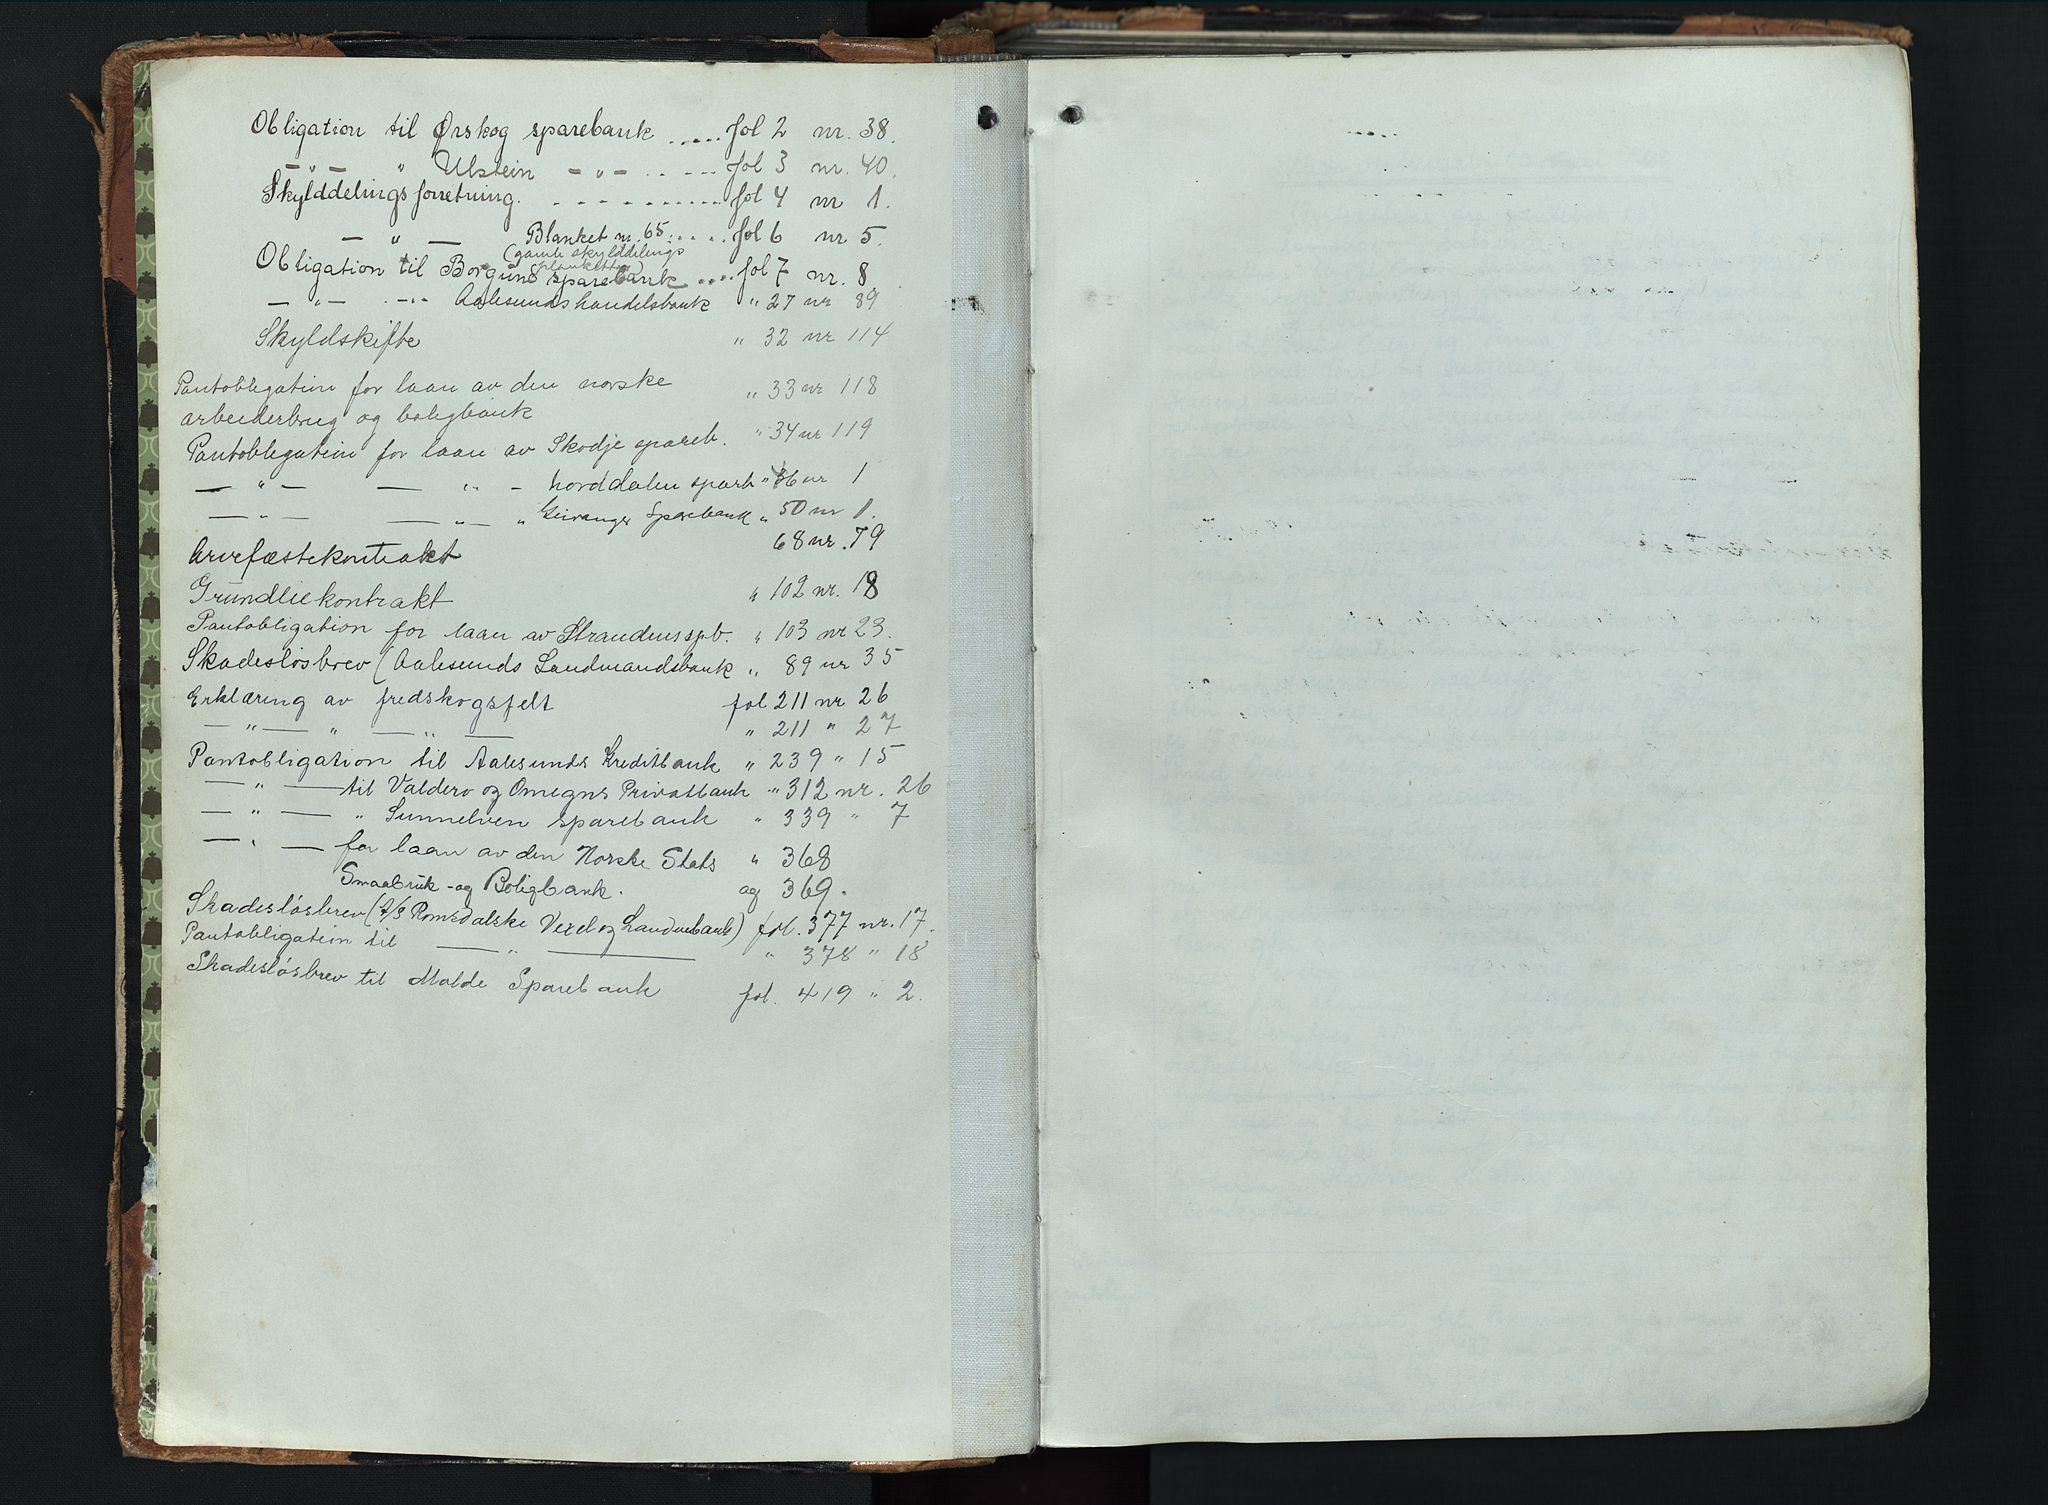 Obligation til Ørskog sparebank ..... fol 2 nr. 38.
— " — " Ulstein — " — ..... fol 3 nr. 40.
Skylddelingsforretning. ........... fol 4 nr 1.
— " — Blanket nr. 65 ..... fol 6 nr 5.
(gamle skylddelings
blanketter)
Obligation til Borgund sparebank .... fol 7 nr. 8
— " — - " - Aalesunds handelsbank " 27 nr 89
Skyldskifte " 32 nr 114
Pantobligation for laan av den norske " 33 nr 118
arbeiderbrug og boligbank
Pantobligation for laan av Skodje spareb. " 34 nr 119
— " — — " - Norddalen sparb " 36 nr 1
— " — — " — " Geiranger Sparebank " 50 nr 1.
Arvefæstekontrakt 68 nr. 79
Grundleiekontrakt " 102 nr. 18
Pantobligation for laan av Strandens spb. " 103 nr 23.
Skadesløsbrev (Aalesunds Landmandsbank " 89 nr 35
Erklæring av fredskogsfelt fol 211 nr 26
— " — " — " — " 211 " 27
Pantobligation til Aalesunds Kreditbank " 239 " 15
— " — til Valderø og Omegns Privatbank " 312 nr. 26
— " — " Sunnelven sparebank " 339 " 7
— " — for laan av den Norske Stats " 368
Smaabruk - og Boligbank. og 369.
Skadesløsbrev (A/S Romsdalske Vexel og Landmbank) fol. 377 nr. 17.
Pantobligation til — " — " 378 " 18
Skadesløsbrev til Molde Sparebank fol. 419 " 2.